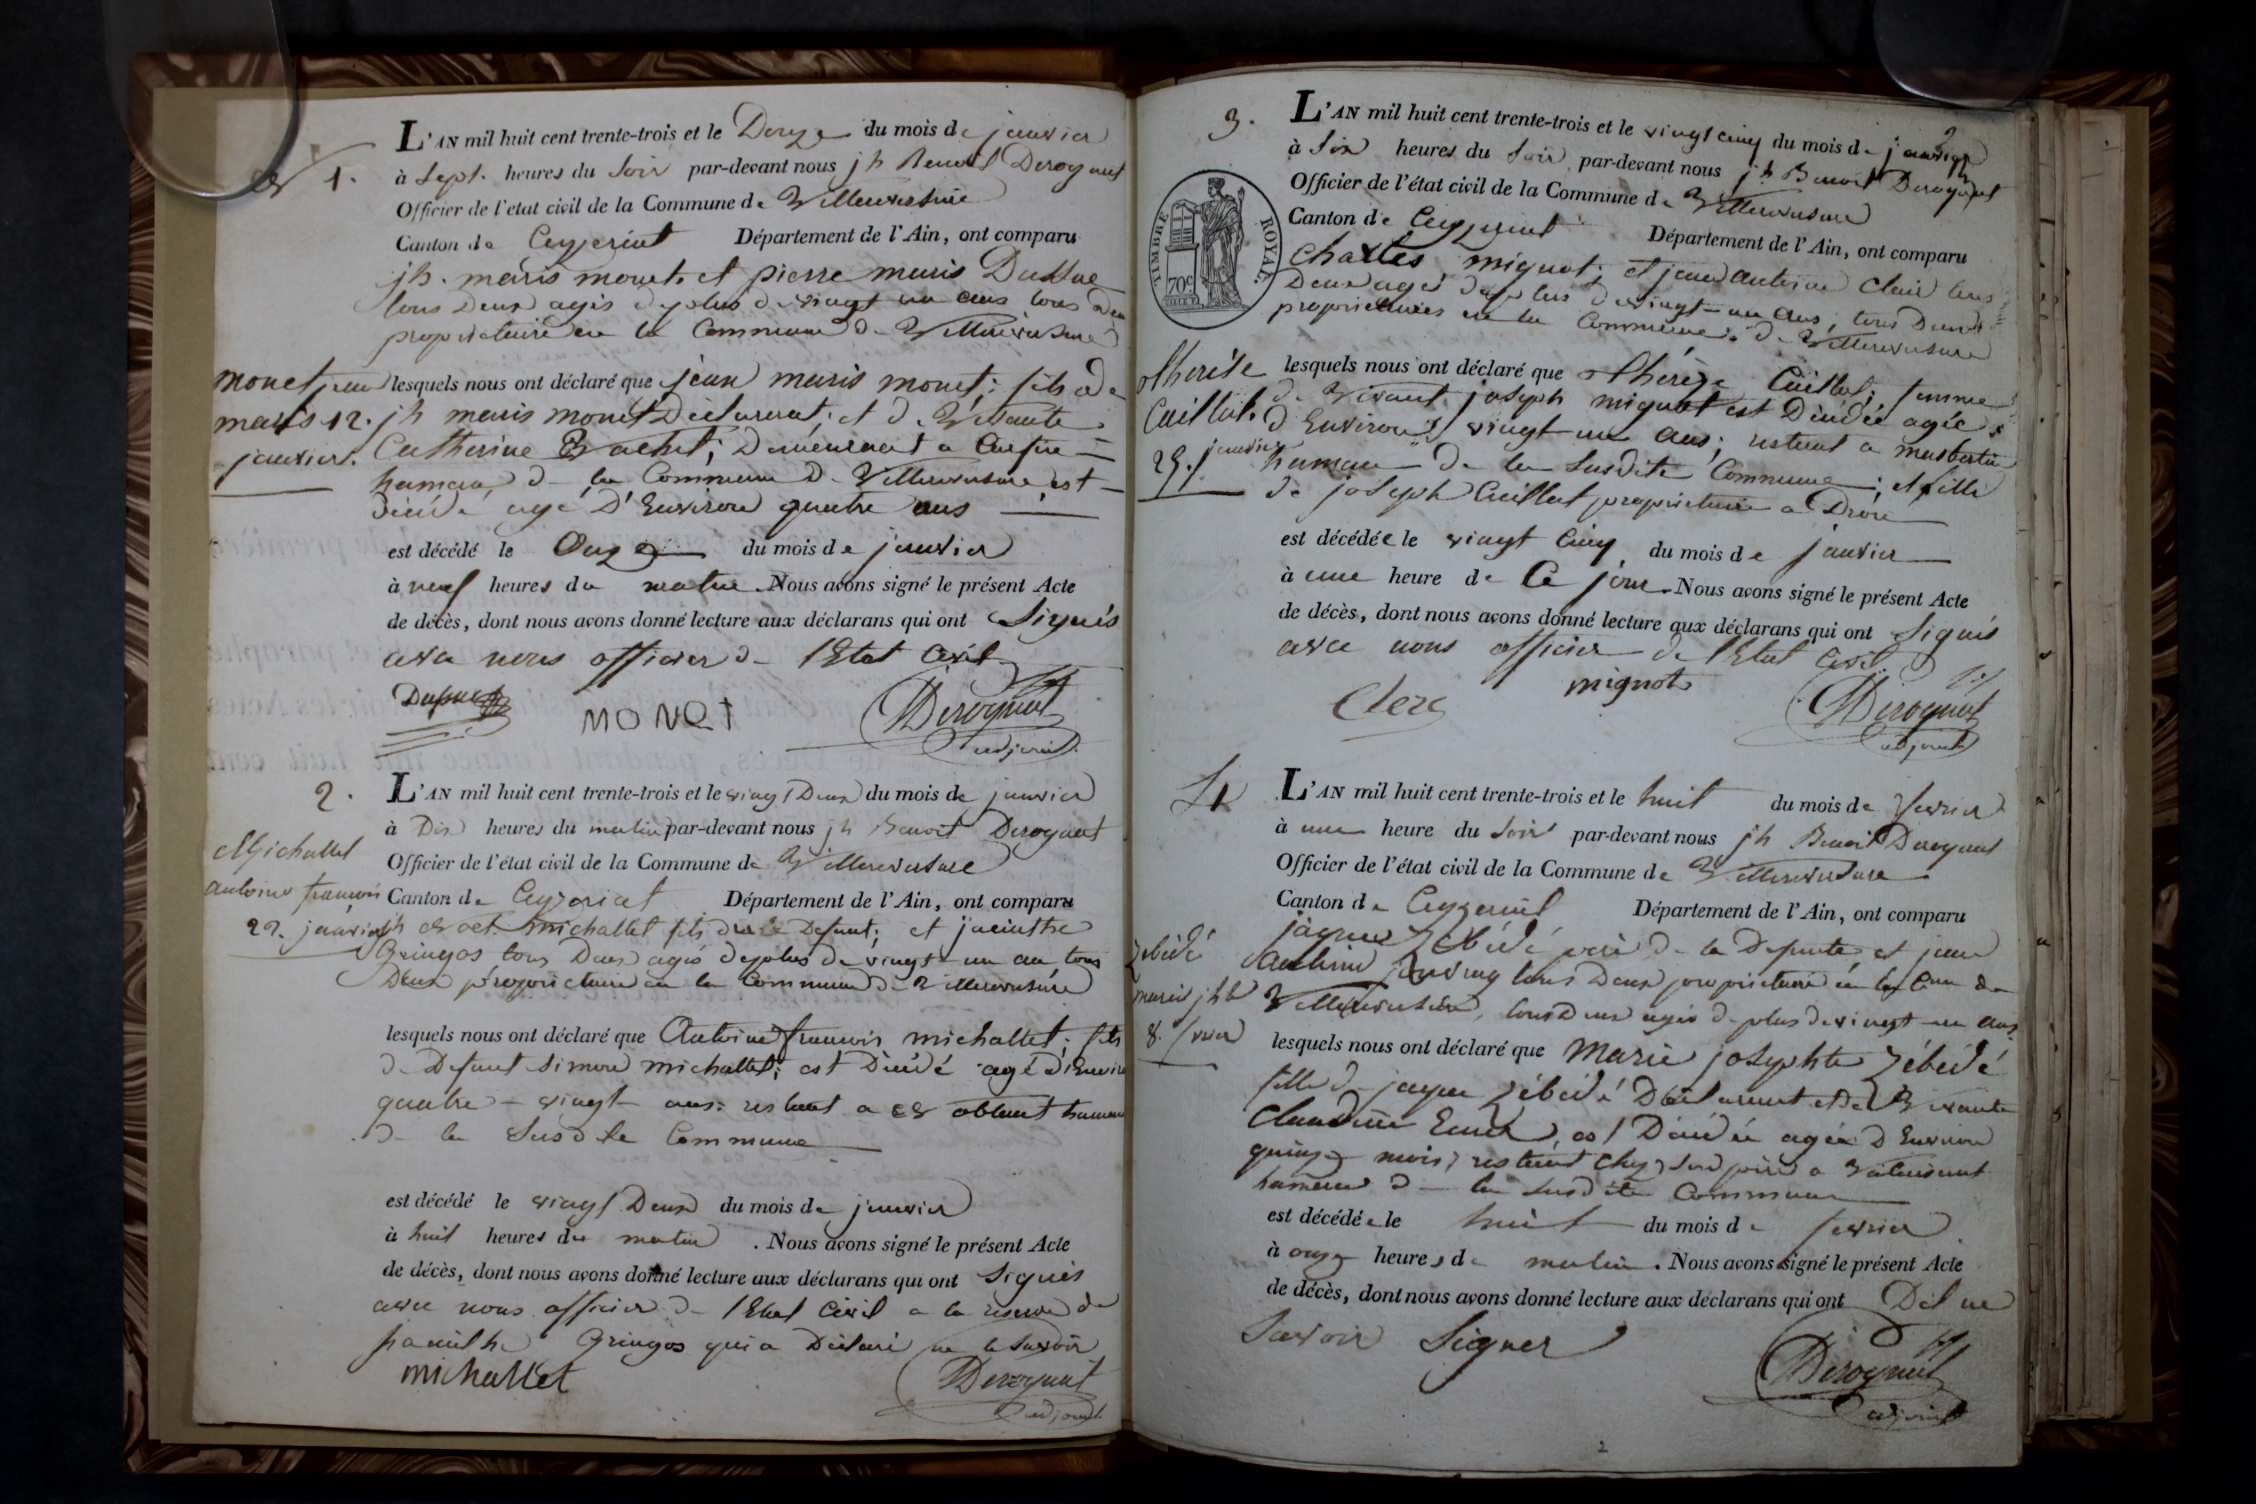 1.
L'AN mil huit cent trente-trois et le Douze du mois de janvier
à Sept heures du Soir par-devant nous jh Benoit Deroguat
Officier de l'etat civil de la Commune de Villereversure
Canton de Ceyzeriat Département de l'Ain, ont comparu
jh. maris monet et pierre maris
tous Deux agés de plus de vingt un ans tous
proprietaire en la Commune de Villereversure
monet jean
maris 12.
janvier.
lesquels nous ont déclaré que jean maris monet; fils de
jh maris monet Déclarant; et de Vivante
Catherine Brachet; Demeurant a
hameau de la Commune de Villereversure est
Décédé agé D'Environ quatre ans
est décédé le Onze du mois de janvier
à neuf heures du matin. Nous avons signé le présent Acte
de décès, dont nous avons donné lecture aux déclarans qui ont Signés
avec nous officier de l'Etat Civil
MONET Deroguat
adjoint
2.
Michallet
antoine francois
22. janvier
L'AN mil huit cent trente-trois et le vingt Deux du mois de janvier
à Dix heures du matin par-devant nous jh Benoit Deroguat
Officier de l'état civil de la Commune de Villereversure
Canton de Ceyzeriat Département de l'Ain, ont comparu
michallet fils du Defunt; et jacinthe
Gringos tous Deux agés de plus de vingt-un an, tous
Deux propriétaire en la Commune de Villereversure
lesquels nous ont déclaré que Antoine francois michallet; fils
de Defunt Simon michallet; est Décédé agé d'Environ
quatre-vingt ans; restant a hameau
de la Susdite Commune
est décédé le vingt Deux du mois de janvier
à huit heures du matin. Nous avons signé le présent Acte
de décès, dont nous avons donné lecture aux déclarans qui ont Signés
avec nous officier de l'Etat Civil a la reserve de
Gringos qui a Déclaré ne le Savoir
michallet Deroguat
adjoint
3.
L'AN mil huit cent trente-trois et le vingt cinq du mois de janvier
à Six heures du Soir par-devant nous jh Benoit Deroguat
Officier de l'état civil de la Commune de Villereversure
Canton de Ceyzeriat Département de l'Ain, ont comparu
TIMBRE ROYAL
70c
Charles mignot; et jean antoine Clair tous
Deux agés de plus de vingt-un ans; tous Deux
propriétaires en la Commune de Villereversure
therése
Cuillat
25. janvier
lesquels nous ont déclaré que thérèze Cuillat; femme
de Vivant joseph mignot est Décédée agée
d'Environ vingt-un ans; restant a
hameau de la Susdite Commune; et fille
de joseph Cuillat propriétaire a Drom
est décédée le vingt Cinq du mois de janvier
à une heure de Ce jour. Nous avons signé le présent Acte
de décès, dont nous avons donné lecture aux déclarans qui ont Signés
avec nous officier de l'Etat Civil
Clerc mignot Deroguat
adjoint
4
L'AN mil huit cent trente-trois et le huit du mois de fevrier
à une heure du Soir par-devant nous jh Benoit Deroguat
Officier de l'état civil de la Commune de Villereversure
Canton de Ceyzeriat Département de l'Ain, ont comparu
Zébédé
8.
jaques Zébédé père de la Defunte et jean
tous Deux propriétaire en la
Villereversure, tous Deux agés de plus de vingt-un ans
lesquels nous ont déclaré que Marie josephte Zébédé
fille de jaques Zébédé Déclarant et de Vivante
Claudine est Décédée agée D'Environ
quinze mois; restant chez Son père a
hameau de la Susdite Commune
est décédée le huit du mois de fevrier
à onze heures de matin. Nous avons signé le présent Acte
de décès, dont nous avons donné lecture aux déclarans qui ont Dit ne
Savoir Signer
Deroguat
adjoint
2